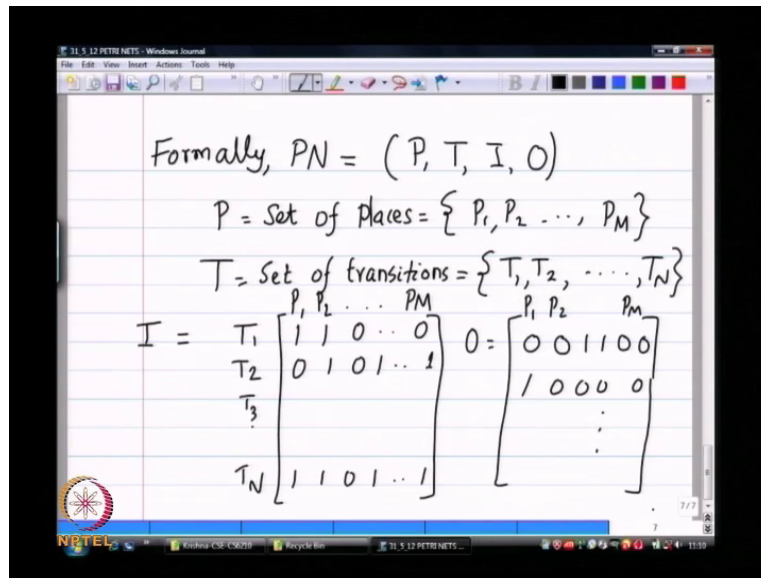 31_5_12 PETRI NETS - Windows Journal
File Edit View Insert Actions Tools Help
Formally, PN = (P, T, I, O)
P = Set of places = { P1, P2 ..., PM }
T = Set of transitions = { T1, T2, ...., TN }
P1 P2 ... PM P1 P2 PM
I = T1 [ 1 1 0 .. 0 ] O = [ 0 0 1 1 0 0 ]
T2 0 1 0 1 .. 1 1 0 0 0 0
T3
TN 1 1 0 1 .. 1
7/7
7
NPTEL
Krishna-CSE-CS6210 Recycle Bin 31_5_12 PETRI NETS ... 11:10